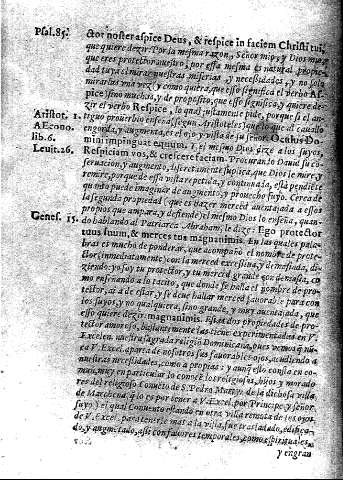 Psal. 85. ctor noster aspice Deus, & respice in faciem Christi tui,
que quiere dezir: Por la mesma razon, Señor mio, y Dios mio,
que eres protector nuestro, por essa mesma es natural propie
dad tuya el mirar nuestras miserias y necessidades, y no solo
mirarlas vna vez y como quiera, que esso significa el verbo As-
pice, sino muchas, y de proposito, que esso significa, y quiere de-
zir el verbo Respice, lo qual justamente pide, porque si el an-
Aristot. 1. tiguo prouerbio enseña, segun Aristoteles, que lo que al cauallo
AEcono. engorda, y augmenta, es el ojo, y vista de su señor: Oculus Do-
lib. 6. mini impinguat equum, el mesmo Dios dize a los suyos,
Leuit. 26. Respiciam vos, & crescere faciam. Procurando Dauid su con-
seruacion, y augmento, discretamente suplica, que Dios le mire, y
remire, porque de essa vista repetida, y continuada, està pendiente
quanto puede imaginar de augmento, y prouecho suyo. Cerca de
la segunda propiedad (que es hazer merced auentajada a essos
propios que ampara, y defiende) el mesmo Dios lo enseña, quan-
Genes. 15. do hablando al Patriarca Abraham, le dize: Ego protector
tuus sum, & merces tua magna nimis. En las quales pala-
bras es mucho de ponderar, que acompaño el nombre de prote-
ctor (immediatamente) con la merced excessiua, y demasiada, di-
ziendo: yo soy tu protector, y tu merced grande con demasia, co
mo enseñando a lo tacito, que donde se halla el nombre de pro-
tector, ha de estar, y se deue hallar merced fauorable para con
los suyos, y no qualquiera, sino grande, y muy auentajada, que
esso quiere dezir: magna nimis. Estas dos propiedades de pro-
tector amoroso,
Excelen. nuestra sagrada religion Dominicana, pues vemos q̃ nũ-
ca V. Excel. aparta de nosotros sus fauorables ojos, acudiendo a
nuestras necessidades, como a propias: y aunq̃ esto consta en co-
mun, muy en particular lo conocẽ los religiosos, hijos y morado
res del religioso Conuẽto de S. Pedro Martyr de la dichosa villa
de Marchena, q̃ lo es por tener a V. Excel. por Principe y señor
suyo: y el qual Conuento estando en otra villa remota de los ojos
de V. Excel. para tenerle mas a la vista, fue trasladado, edifica-
do, y augmẽtado, assi con fauores temporales, como espirituales,
y engran